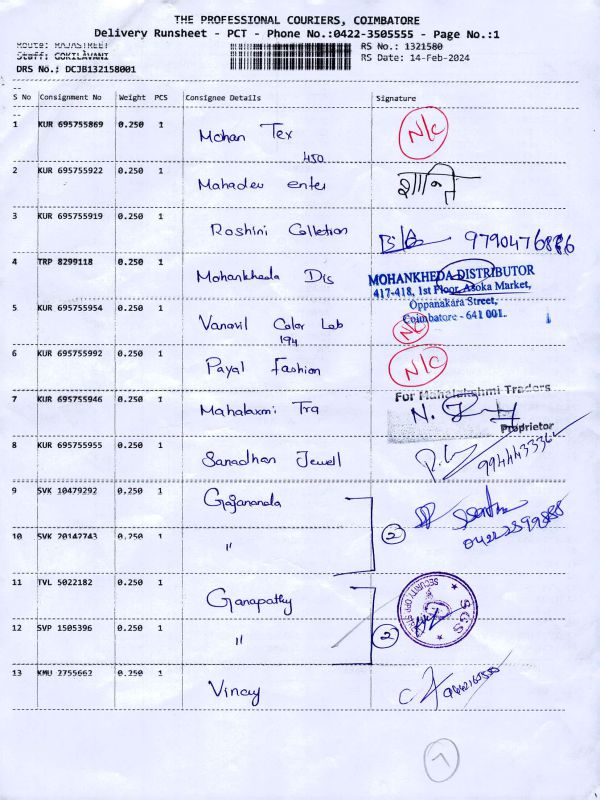 THE PROFESSIONAL COURIERS, COIMBATORE
Delivery Runsheet - PCT - Phone No.:0422-3505555 - Page No.:1
Route: RAJASTREET
RS No.: 1321580
Staff: GOKILAVANI
RS Date: 14-Feb-2024
DRS No.: DCJB132158001
S No Consignment No Weight PCS Consignee Details Signature
1 KUR 695755869 0.250 1 Mohan Tex N/C
450
2 KUR 695755922 0.250 1 Mahadev enter शान्ति
3 KUR 695755919 0.250 1 Roshini Colletion
4 TRP 8299118 0.250 1 Mohankheda Dis
MOHANKHEDA DISTRIBUTOR
417-418, 1st Floor, Asoka Market,
Oppanakara Street,
Coimbatore - 641 001.
5 KUR 695755954 0.250 1 Vanavil Color Lab N/C
194
6 KUR 695755992 0.250 1 Payal Fashion N/C
7 KUR 695755946 0.250 1 Mahalaxmi Tra
For Mahalakshmi Traders
Proprietor
8 KUR 695755955 0.250 1 Sanadhan Jewell
9 SVK 10479292 0.250 1 Gajananda
10 SVK 20142743 0.250 1 " 2
11 TVL 5022182 0.250 1 Ganapathy
SGS
12 SVP 1505396 0.250 1 " 2
13 KMU 2755662 0.250 1 Vinay